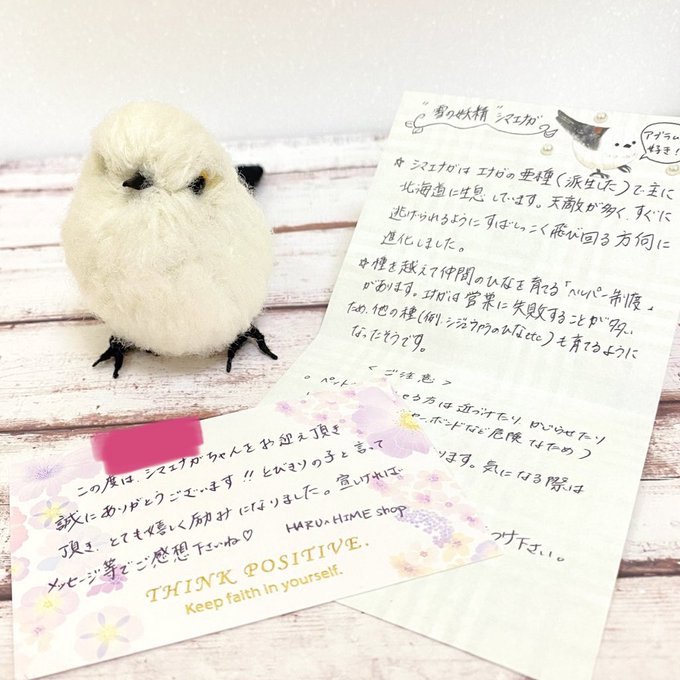 "雪の妖精"シマエナガ
アブラムシ
好き!
☆ シマエナガは エナガの亜種(派生した)で主に
北海道に生息しています。天敵が多く、すぐに
逃げられるように すばしっこく飛び回る方向に
進化しました。
☆種を越えて仲間のひなを育てる「ヘルパー制度」
があります。エナガは営巣に失敗することが多い
ため、他の種(例.シジュウカラのひなetc)も育てるように
なったそうです。
<ご注意>
る方は近づけたり、かじらせたり
ボンドなど危険なため)
ります。気になる際は
つけ下さい。
この度は、シマエナガちゃんをお迎え頂き
誠にありがとうございます!!とびきりの子と言って
頂き、とても嬉しく励みになりました。宜しければ
メッセージ等でご感想下さいね♡
HARU∧HIME shop
THINK POSITIVE.
Keep faith in yourself.